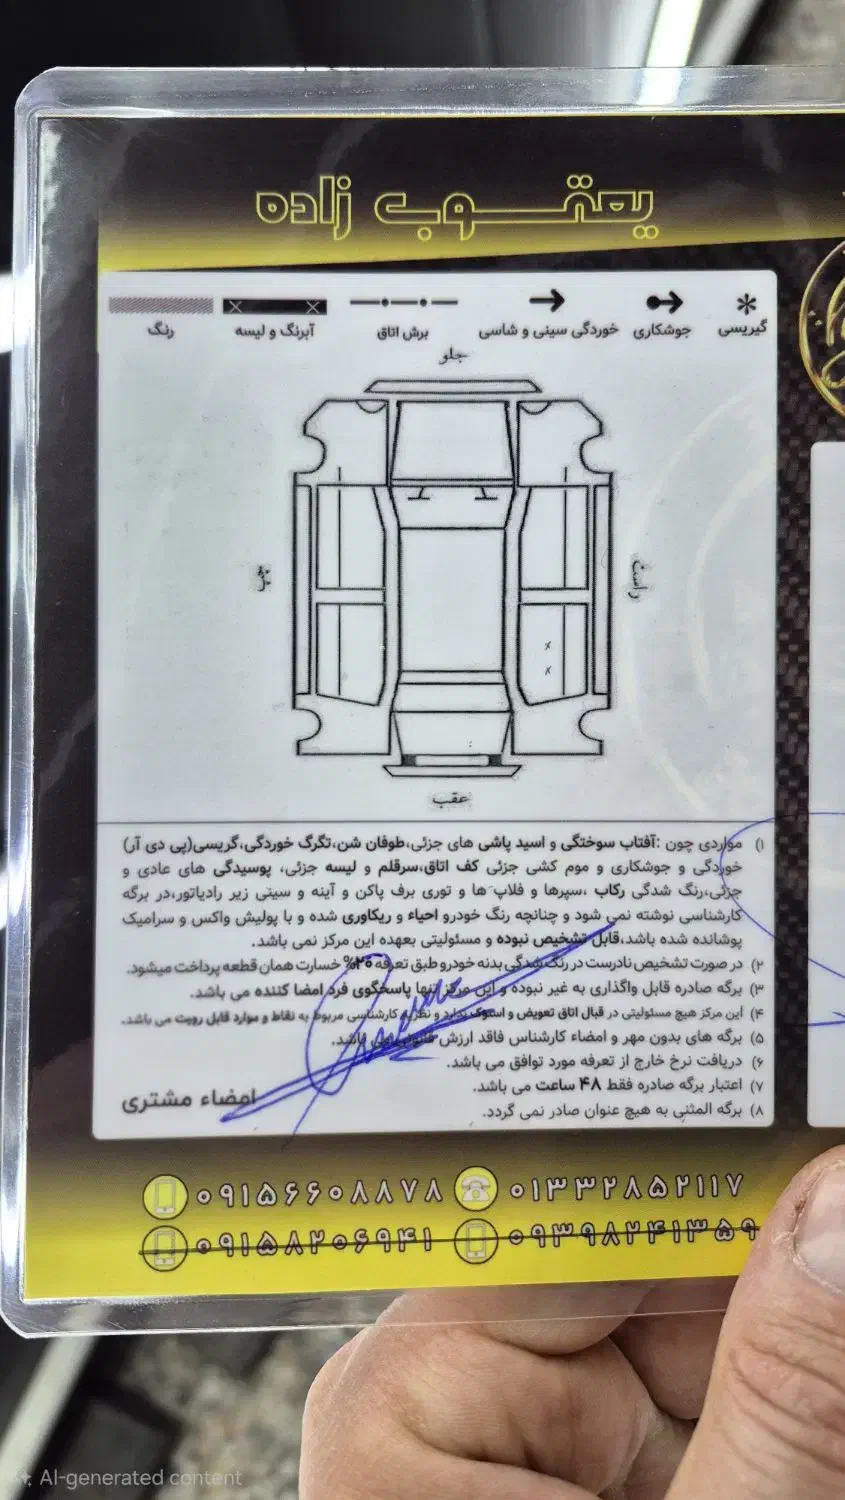 یعقوب زاده
گیریسی
جوشکاری
خوردگی سینی و شاسی
برش اتاق
آبرنگ و لیسه
رنگ
جلو
راست
عقب
۱) مواردی چون :آفتاب سوختگی و اسید پاشی های جزئی،طوفان شن،تگرگ خوردگی،گریسی(پی دی آر)
خوردگی و جوشکاری و موم کشی جزئی کف اتاق،سرقلم و لیسه جزئی، پوسیدگی های عادی و
جزئی،رنگ شدگی رکاب ،سپرها و فلاپ ها و توری برف پاکن و آینه و سینی زیر رادیاتور،در برگه
کارشناسی نوشته نمی شود و چنانچه رنگ خودرو احیاء و ریکاوری شده و با پولیش واکس و سرامیک
پوشانده شده باشد،قابل تشخیص نبوده و مسئولیتی بعهده این مرکز نمی باشد.
۲) در صورت تشخیص نادرست در رنگ شدگی بدنه خودرو طبق تعرفه ۲۰% خسارت همان قطعه پرداخت میشود.
۳) برگه صادره قابل واگذاری به غیر نبوده و این مرکز تنها پاسخگوی فرد امضا کننده می باشد.
۴) این مرکز هیچ مسئولیتی در قبال اتاق تعویض و استوک ندارد و نظریه کارشناسی مربوط به نقاط و موارد قابل رویت می باشد.
۵) برگه های بدون مهر و امضاء کارشناس فاقد ارزش قانونی می باشد.
۶) دریافت نرخ خارج از تعرفه مورد توافق می باشد.
۷) اعتبار برگه صادره فقط ۴۸ ساعت می باشد.
۸) برگه المثنی به هیچ عنوان صادر نمی گردد.
امضاء مشتری
۰۱۳۳۲۸۵۲۱۱۷
۰۹۱۵۶۶۰۸۸۷۸
۰۹۳۹۸۲۴۱۳۵۹
۰۹۱۵۸۲۰۶۹۴۱
AI-generated content